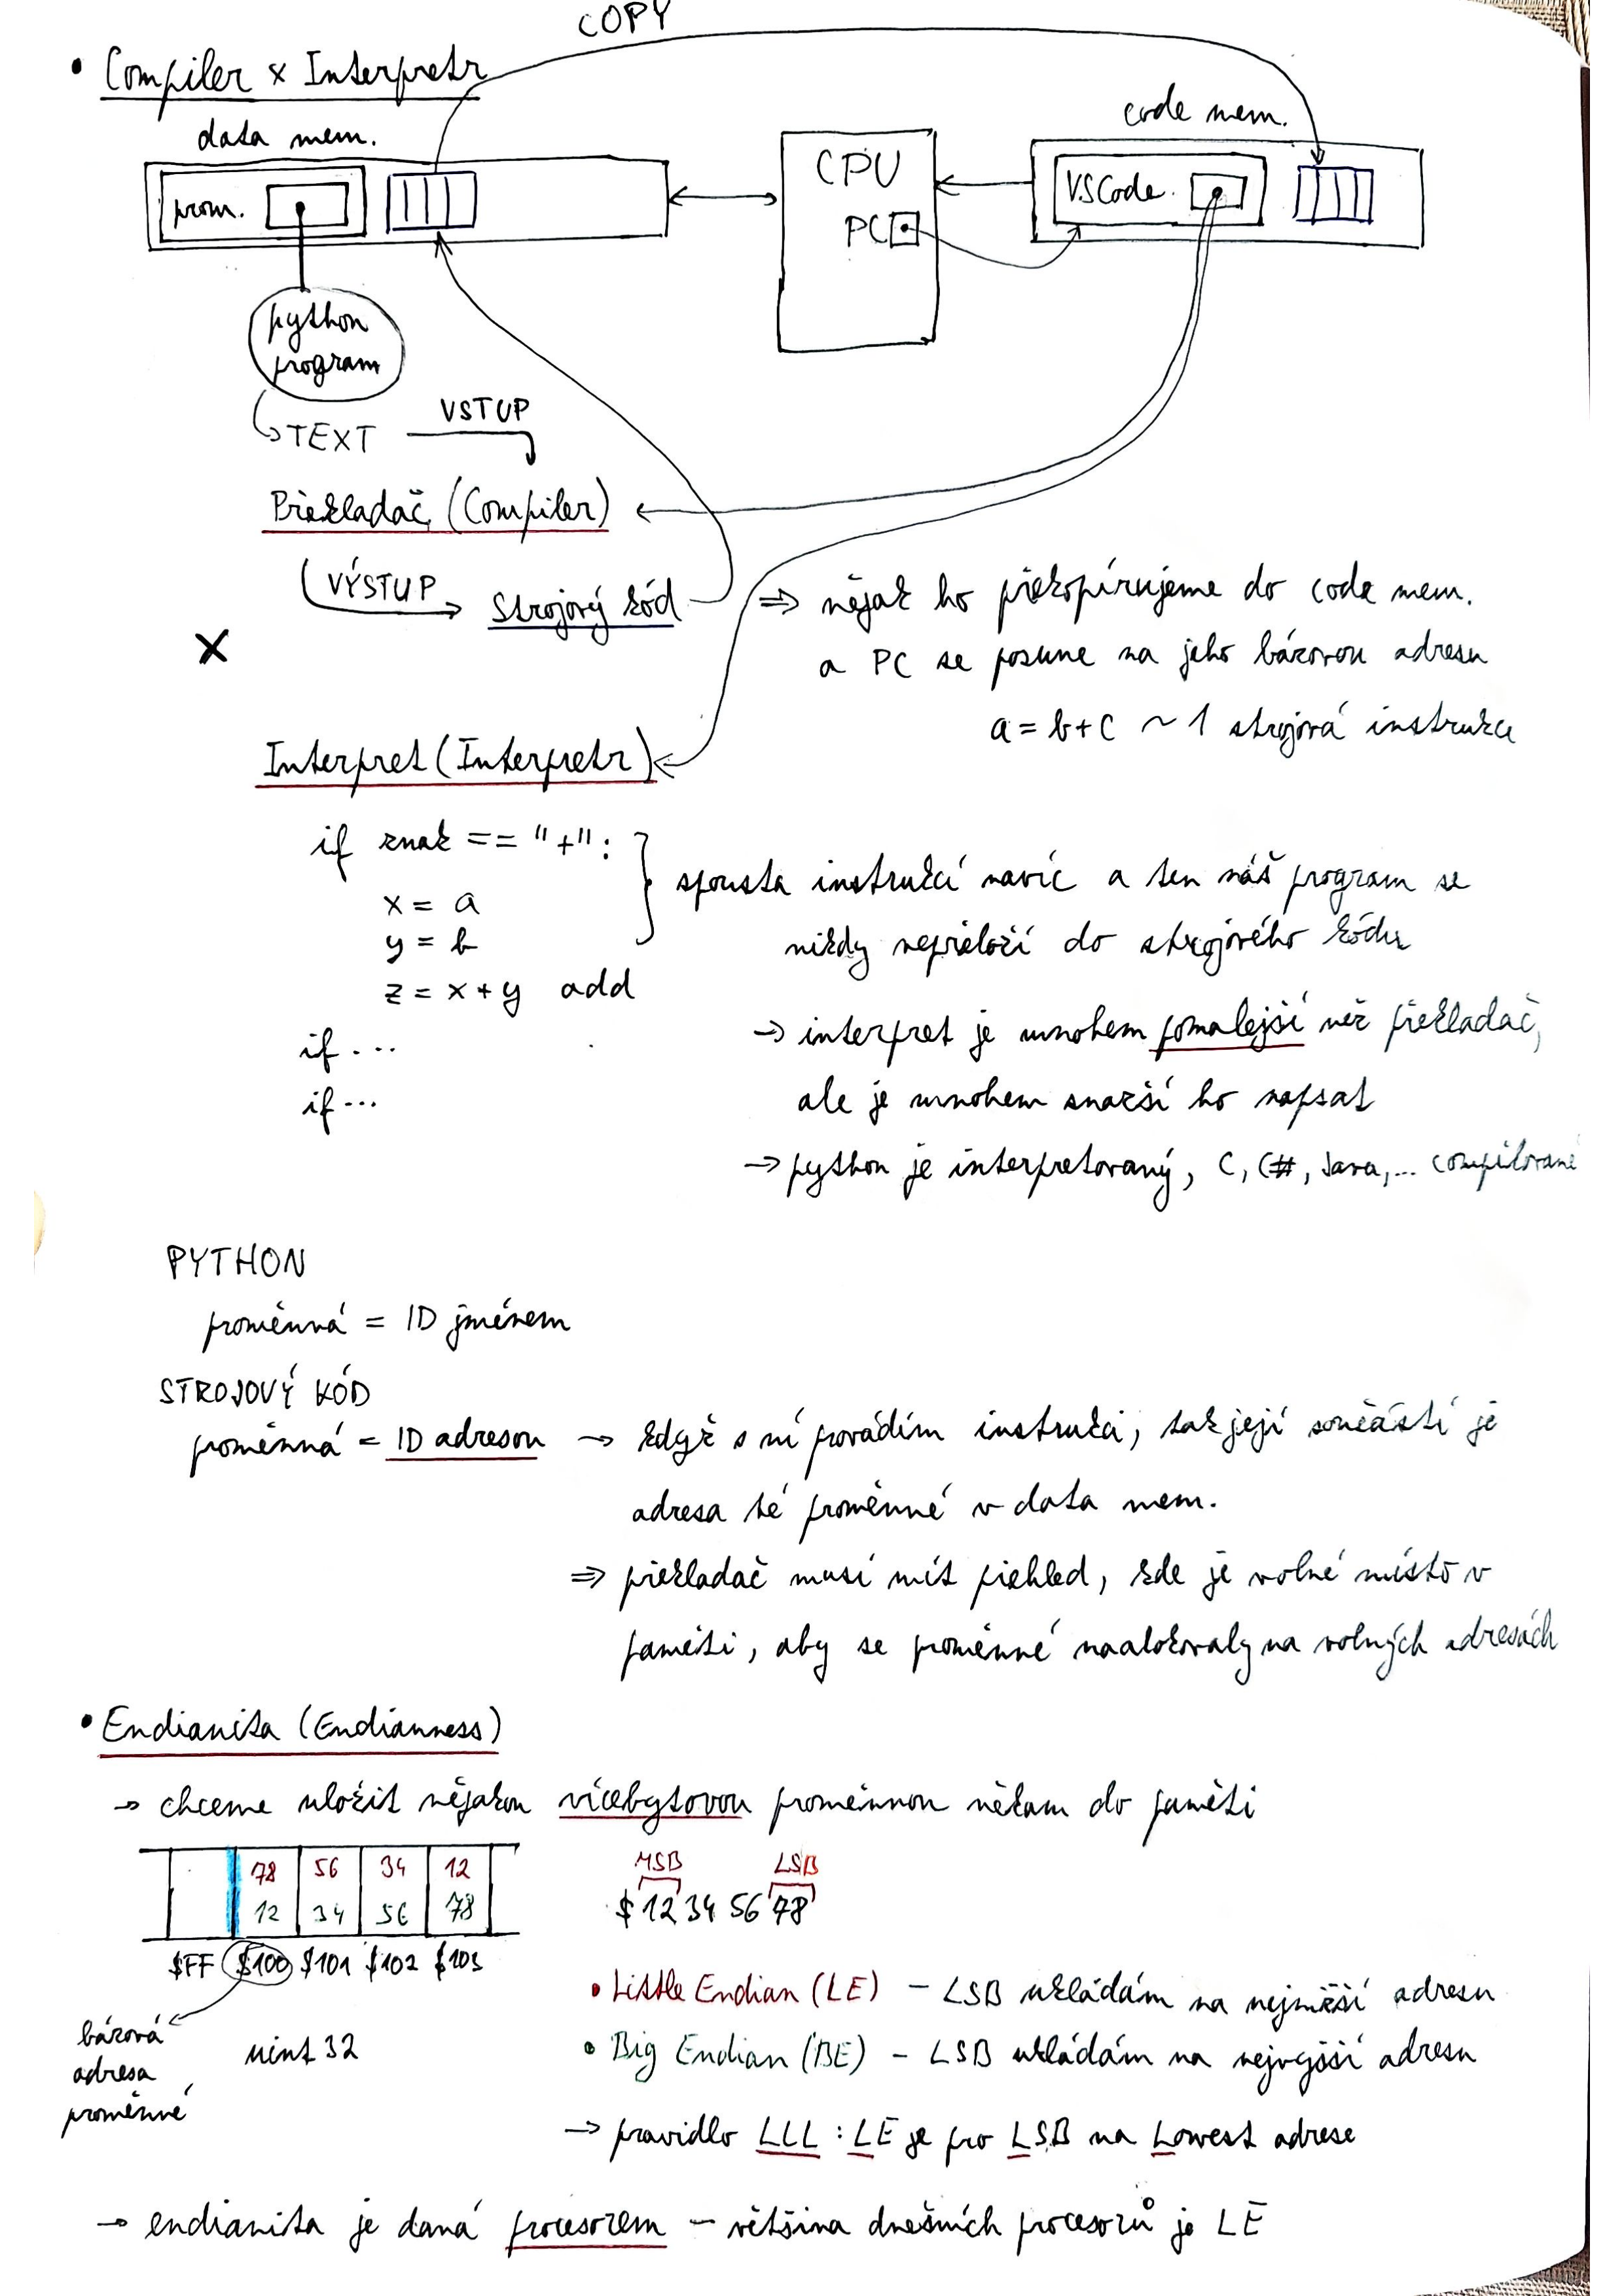 COPY
• Compiler x Interpretr
data mem.
code mem.
prom.
CPU
PC
VSCode.
python
program
TEXT
VSTUP
Překladač (Compiler)
VÝSTUP
Strojový kód
⇒ nějak ho překopírujeme do code mem.
a PC se posune na jeho bázovou adresu
a = b + c ~ 1 strojová instrukce
X
Interpret (Interpretr)
if znak == "+":
x = a
y = b
z = x + y add
if ...
if ...
spousta instrukcí navíc a ten náš program se
nikdy nepřeloží do strojového kódu
→ interpret je mnohem pomalejší než překladač,
ale je mnohem snazší ho napsat
→ python je interpretovaný, C, C#, Java, ... compilované
PYTHON
proměnná = ID jménem
STROJOVÝ KÓD
proměnná = ID adresou → když s ní provádím instrukci, tak její součástí je
adresa té proměnné v data mem.
⇒ překladač musí mít přehled, kde je volné místo v
paměti, aby se proměnné naalokovaly na volných adresách
• Endianita (Endianness)
→ chceme uložit nějakou vícebytovou proměnnou někam do paměti
78 56 34 12
12 34 56 78
$FF $100 $101 $102 $103
MSB LSB
$ 12 34 56 78
bázová
adresa
proměnné
uint 32
• Little Endian (LE) – LSB ukládám na nejnižší adresu
• Big Endian (BE) – LSB ukládám na nejvyšší adresu
→ pravidlo LLL : LE je pro LSB na Lowest adrese
→ endianita je daná procesorem – většina dnešních procesorů je LE